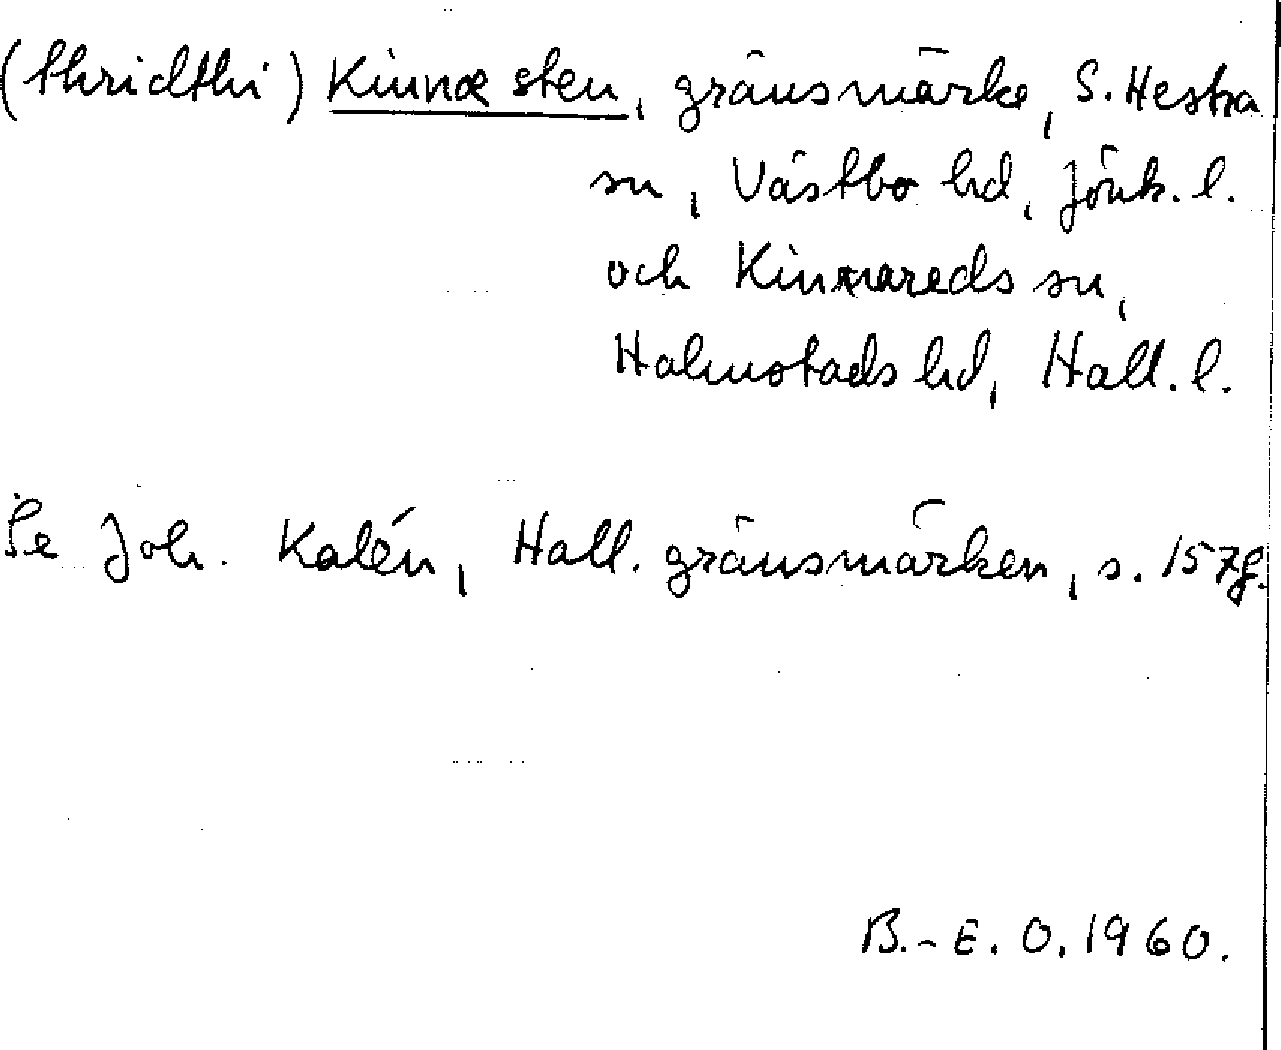 (thridthi) Kinnæ sten, gränsmärke, S. Hestra
sn, Västbo hd, Jönk. l.
och Kinnareds sn,
Halmstads hd, Hall. l.
Se Joh. Kalén, Hall. gränsmärken, s. 157f.
B.-E. O. 1960.